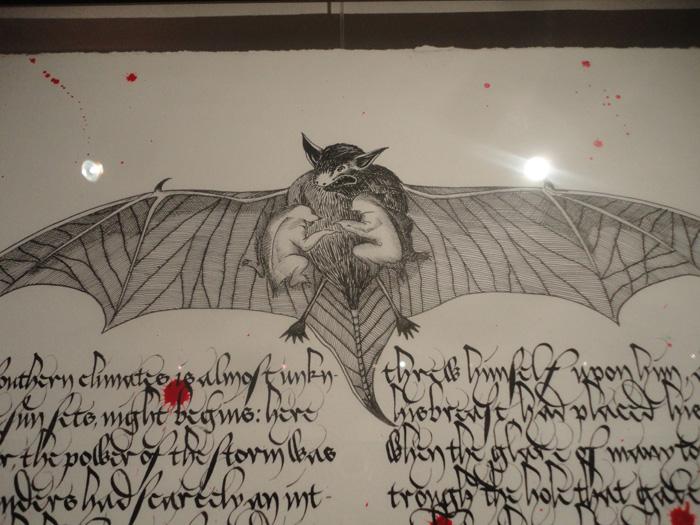 outhern climates is almost unkn-
sun sets, night begins: here
r. the power of the storm was
nders had scarcely an int-
threw himself upon him,
his breast had placed hi
when the glare of many to
trough the hole that gave